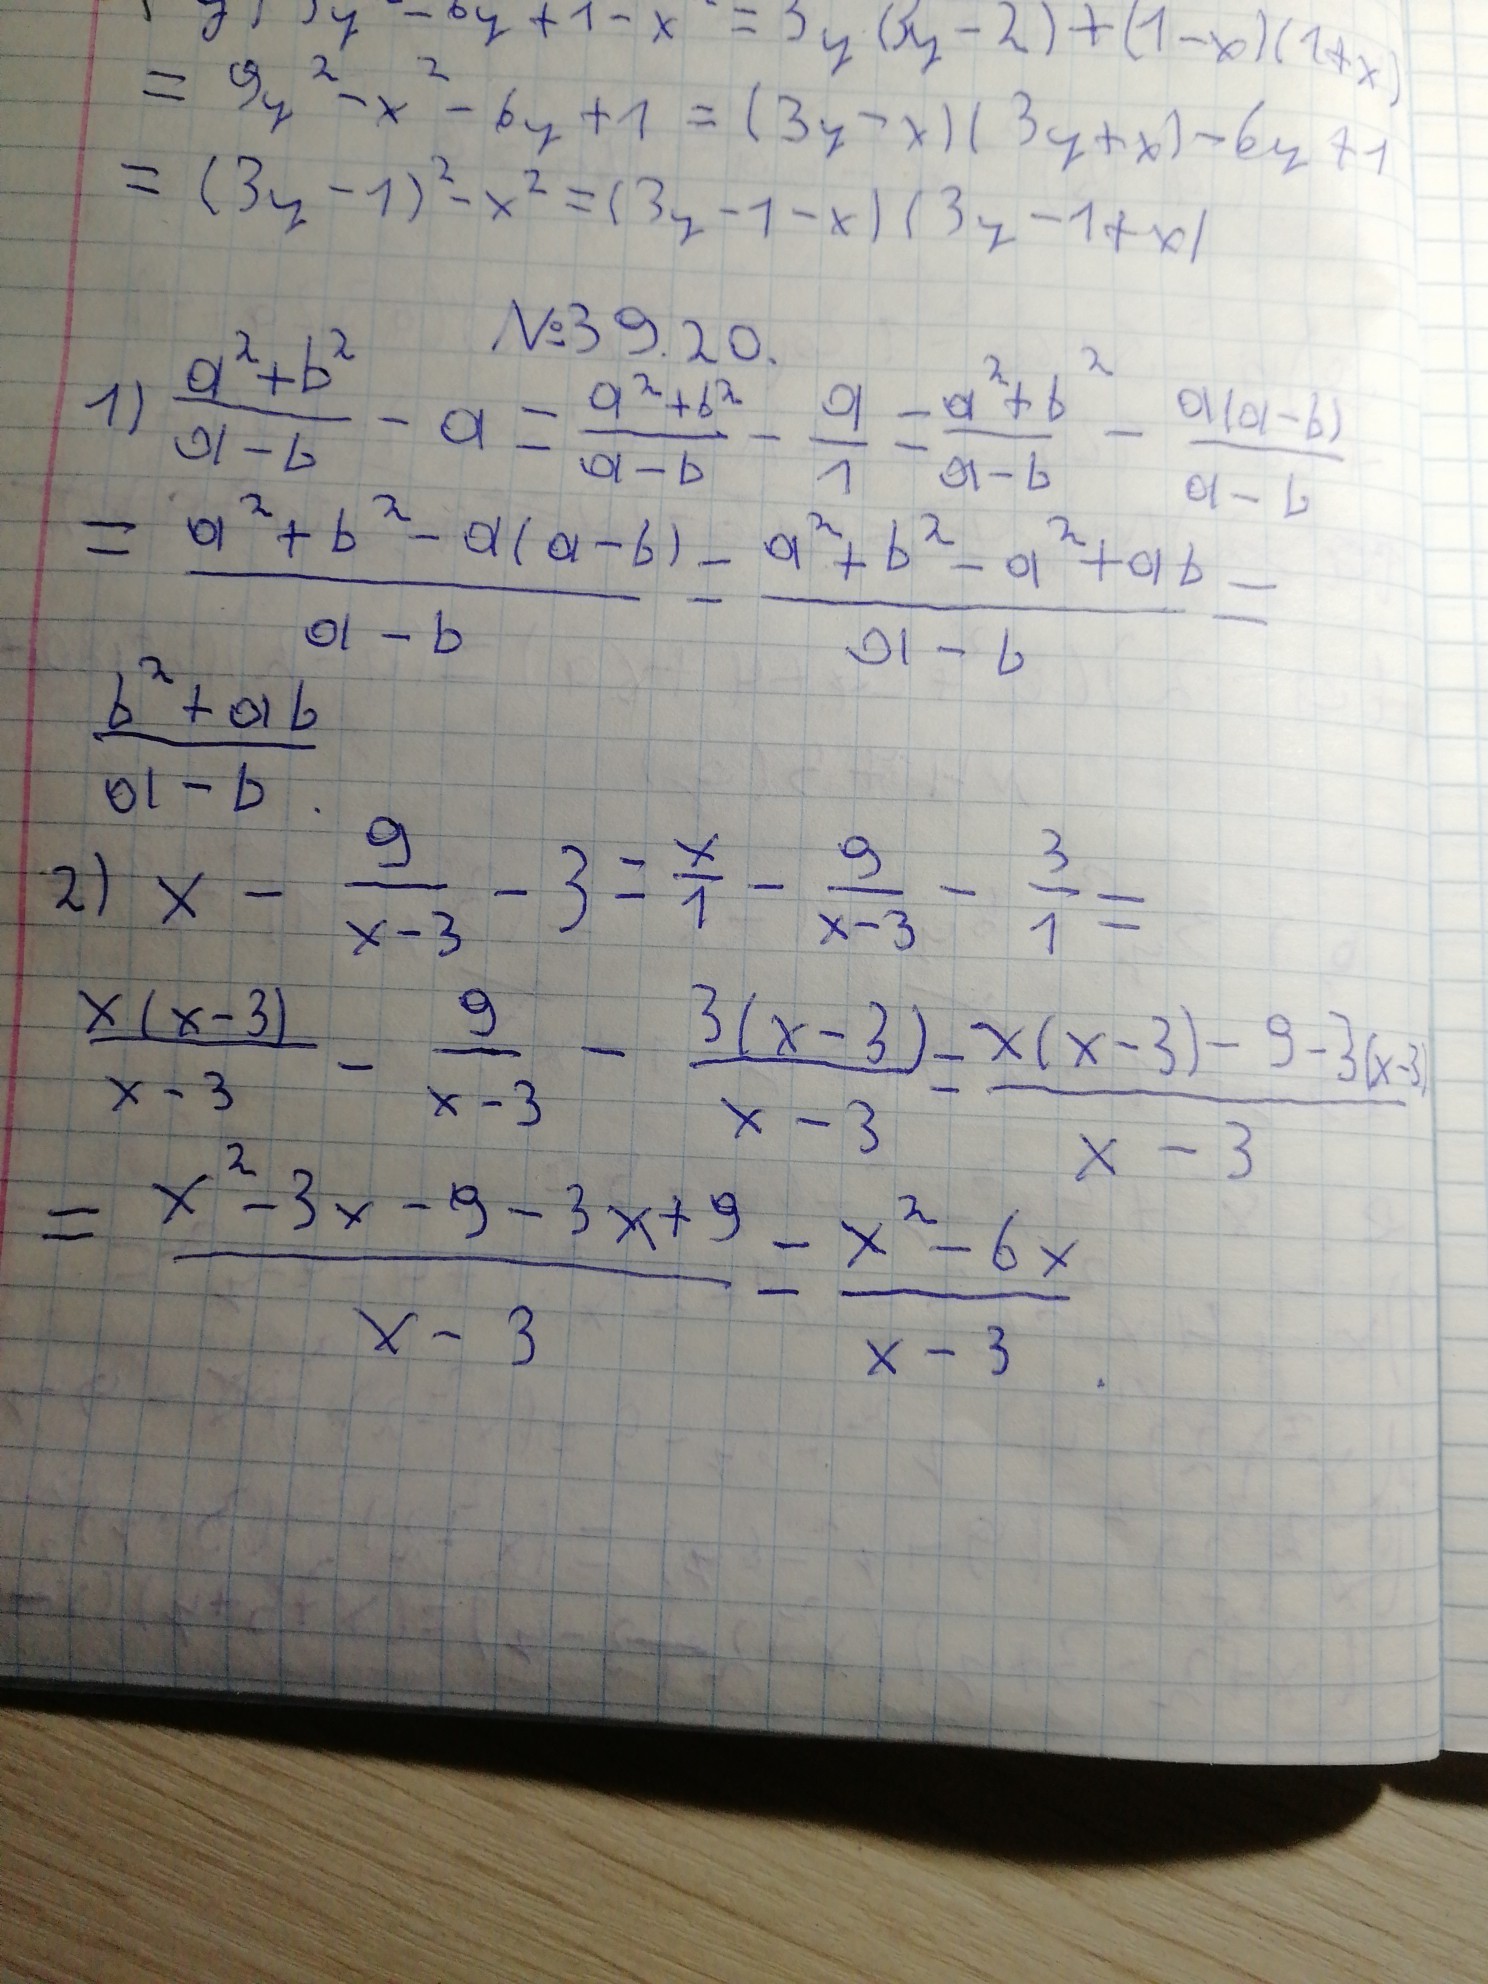 y² - 6y + 1 - x² = 3y(3y - 2) + (1 - x)(1 + x)
= 9y² - x² - 6y + 1 = (3y - x)(3y + x) - 6y + 1
= (3y - 1)² - x² = (3y - 1 - x)(3y - 1 + x)
№39.20.
1) (a² + b²)/(a - b) - a = (a² + b²)/(a - b) - a/1 = (a² + b²)/(a - b) - a(a - b)/(a - b)
= (a² + b² - a(a - b))/(a - b) = (a² + b² - a² + ab)/(a - b) =
(b² + ab)/(a - b).
2) x - 9/(x - 3) - 3 = x/1 - 9/(x - 3) - 3/1 =
x(x - 3)/(x - 3) - 9/(x - 3) - 3(x - 3)/(x - 3) = (x(x - 3) - 9 - 3(x - 3))/(x - 3)
= (x² - 3x - 9 - 3x + 9)/(x - 3) = (x² - 6x)/(x - 3).